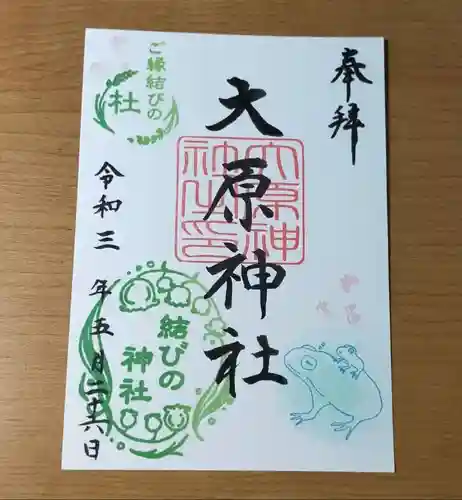 奉拝
大原神社
大原神社之印
ご縁結びの
杜
令和三年五月二十六日
結びの
神社